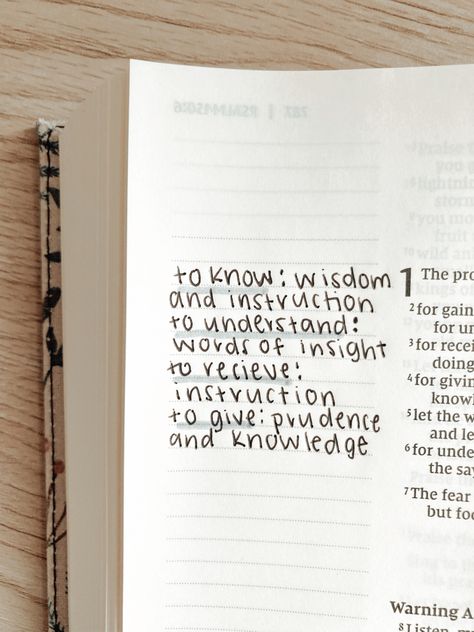 to know: wisdom
and instruction
to understand:
words of insight
to recieve:
instruction
to give: prudence
and knowledge
1 The pro
2 for gain
for un
3 for recei
doing
4 for givin
knowl
5 let the w
and le
6 for unde
the say
7 The fear
but foo
Warning A
8 Listen, m